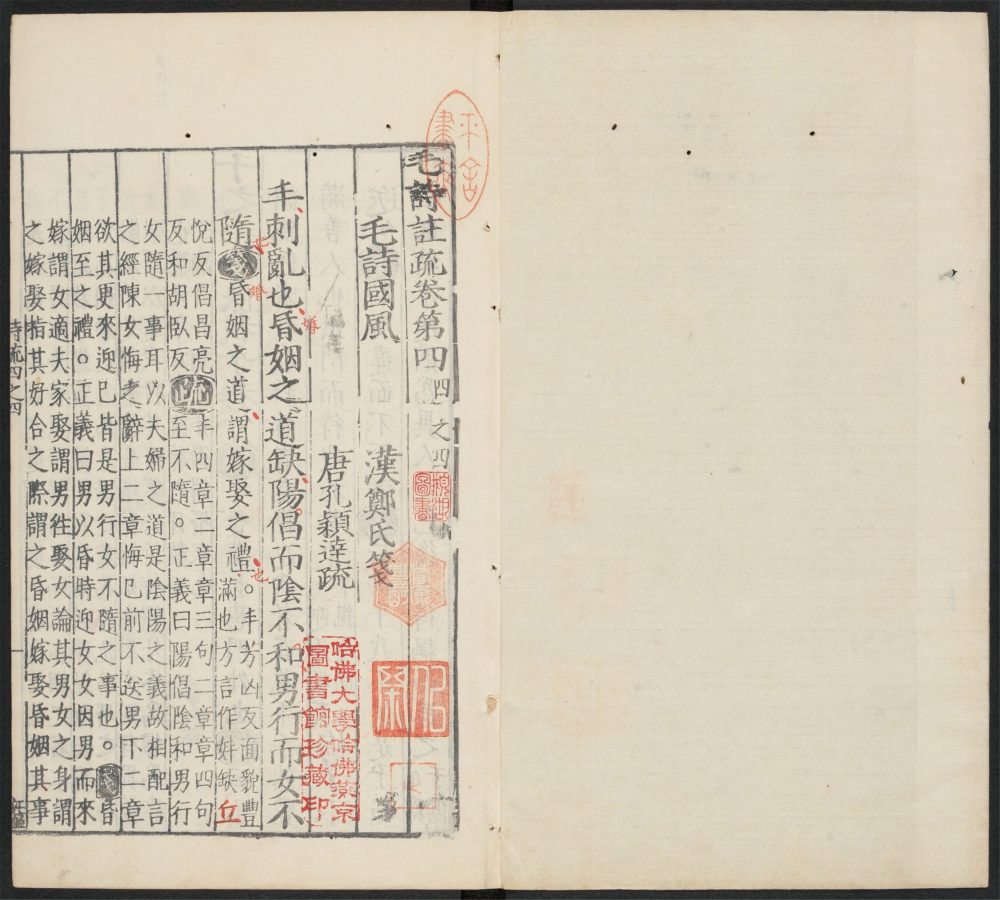 毛詩註疏卷第四 四之四
毛詩國風
漢鄭氏箋
唐孔穎達疏
丰刺亂也昏姻之道缺陽倡而陰不和男行而女不
隨箋昏姻之道謂嫁娶之禮。丰芳凶反面貌豐
滿也方言作妦缺丘
悅反倡昌亮
反和胡臥反疏丰四章二章章三句二章章四句
至不隨。正義曰陽倡陰和男行
女隨一事耳以夫婦之道是陰陽之義故相配言
之經陳女悔之辭上二章悔已前不送男下二章
欲其更來迎已皆是男行女不隨之事也。箋昏
姻至之禮。正義曰男以昏時迎女女因男而來
嫁謂女適夫家娶謂男徃娶女論其男女之身謂
之嫁娶指其好合之際謂之昏姻嫁娶昏姻其事
詩疏四之四
一
婚
婚
也
哈佛大學哈佛燕京
圖書館珍藏印
圖書